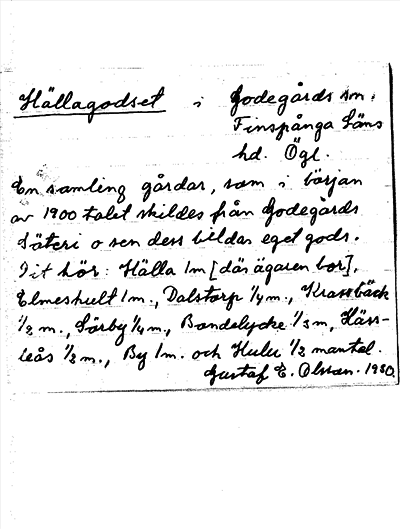 Hällagodset i Godegårds sn.
Finspånga Läns
hd. Ögl.
En samling gårdar, som i början
av 1900 talet skildes från Godegårds
Säteri o sen dess bildar eget gods.
Dit hör: Hälla 1m [där ägaren bor],
Elmeshult 1m., Dalstorp 1/4 m., Krassbäck
1/2 m., Sörby 1/4 m., Bondelycke 1/3 m, Häss-
leås 1/2 m., By 1m. och Hulu 1/2 mantel.
Gustaf E. Olsson. 1930.